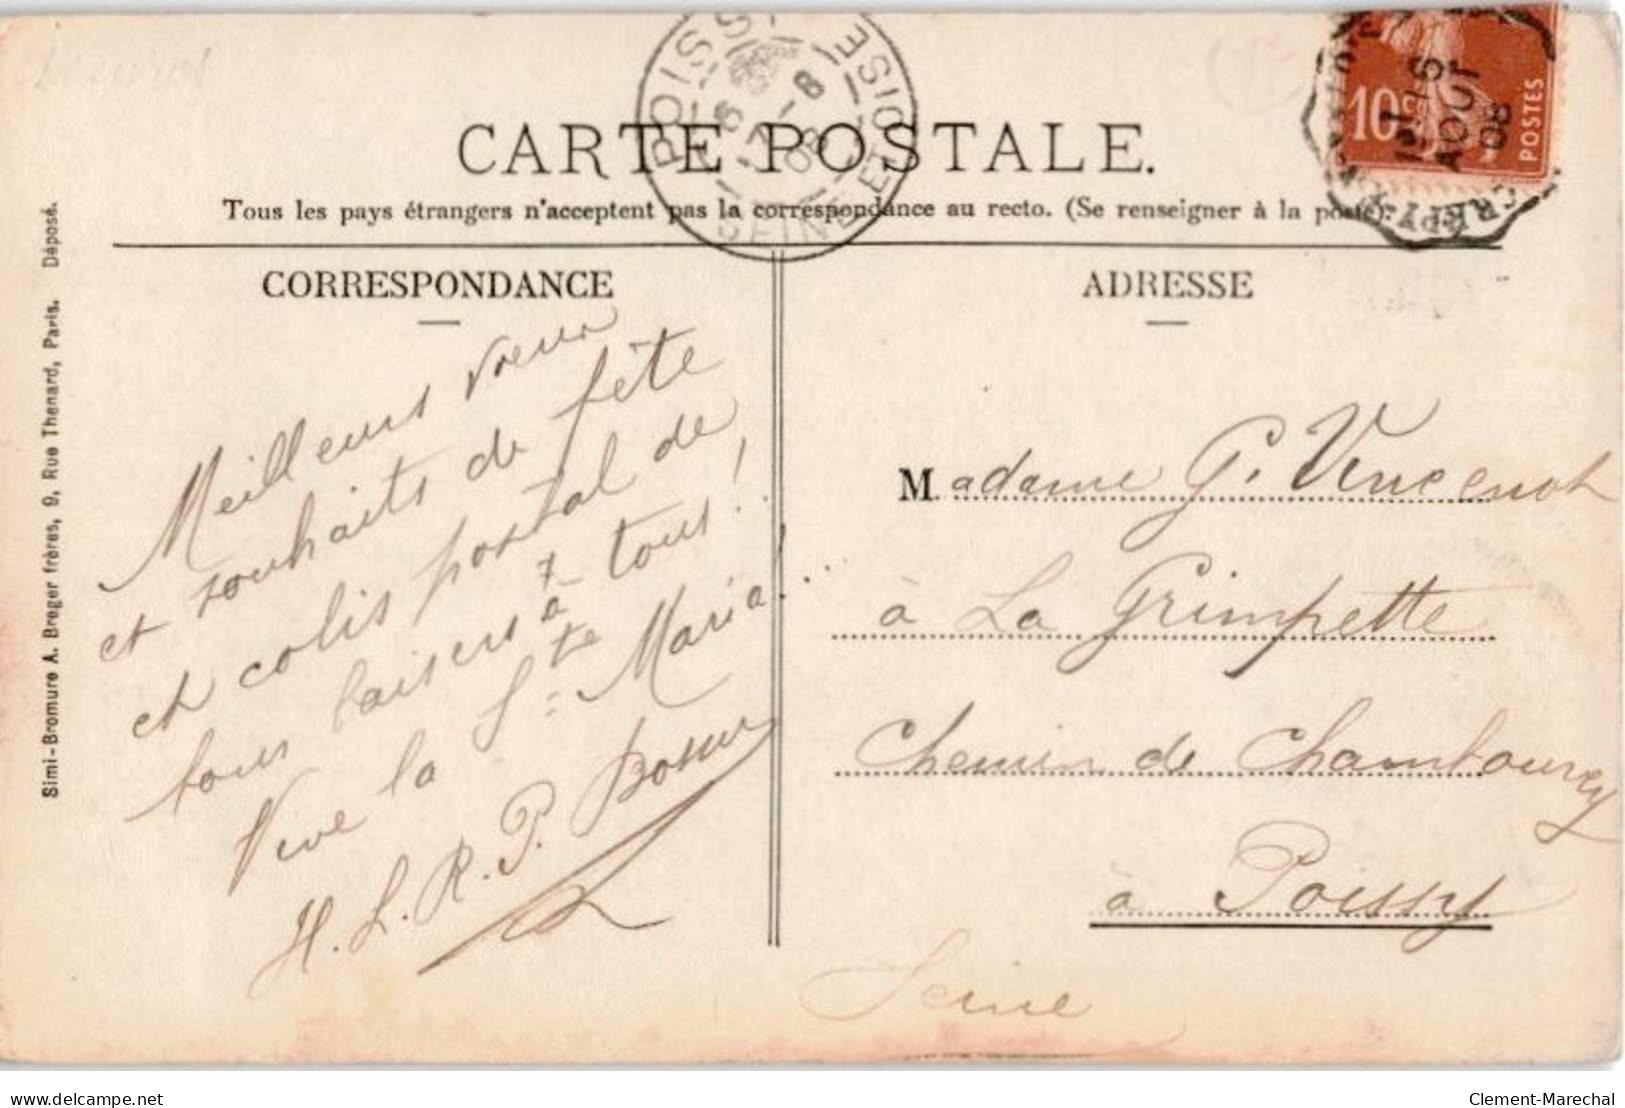 POISSY
SEINE ET OISE
6
17-8
08
10c
POSTES
16
AOUT
08
CARTE POSTALE.
Tous les pays étrangers n'acceptent pas la correspondance au recto. (Se renseigner à la poste).
CORRESPONDANCE
ADRESSE
Meilleurs vœux
et souhaits de fête
et colis postal de
tous baisers à tous!
Vive la Ste Maria...
H. L. R. P.
Madame G. Vincenot
à La Grimpette
Chemin de Chambourcy
à Poissy
Seine
Simi-Bromure A. Breger frères, 9, Rue Thenard, Paris. Déposé.
delcampe.net
Clement-Marechal